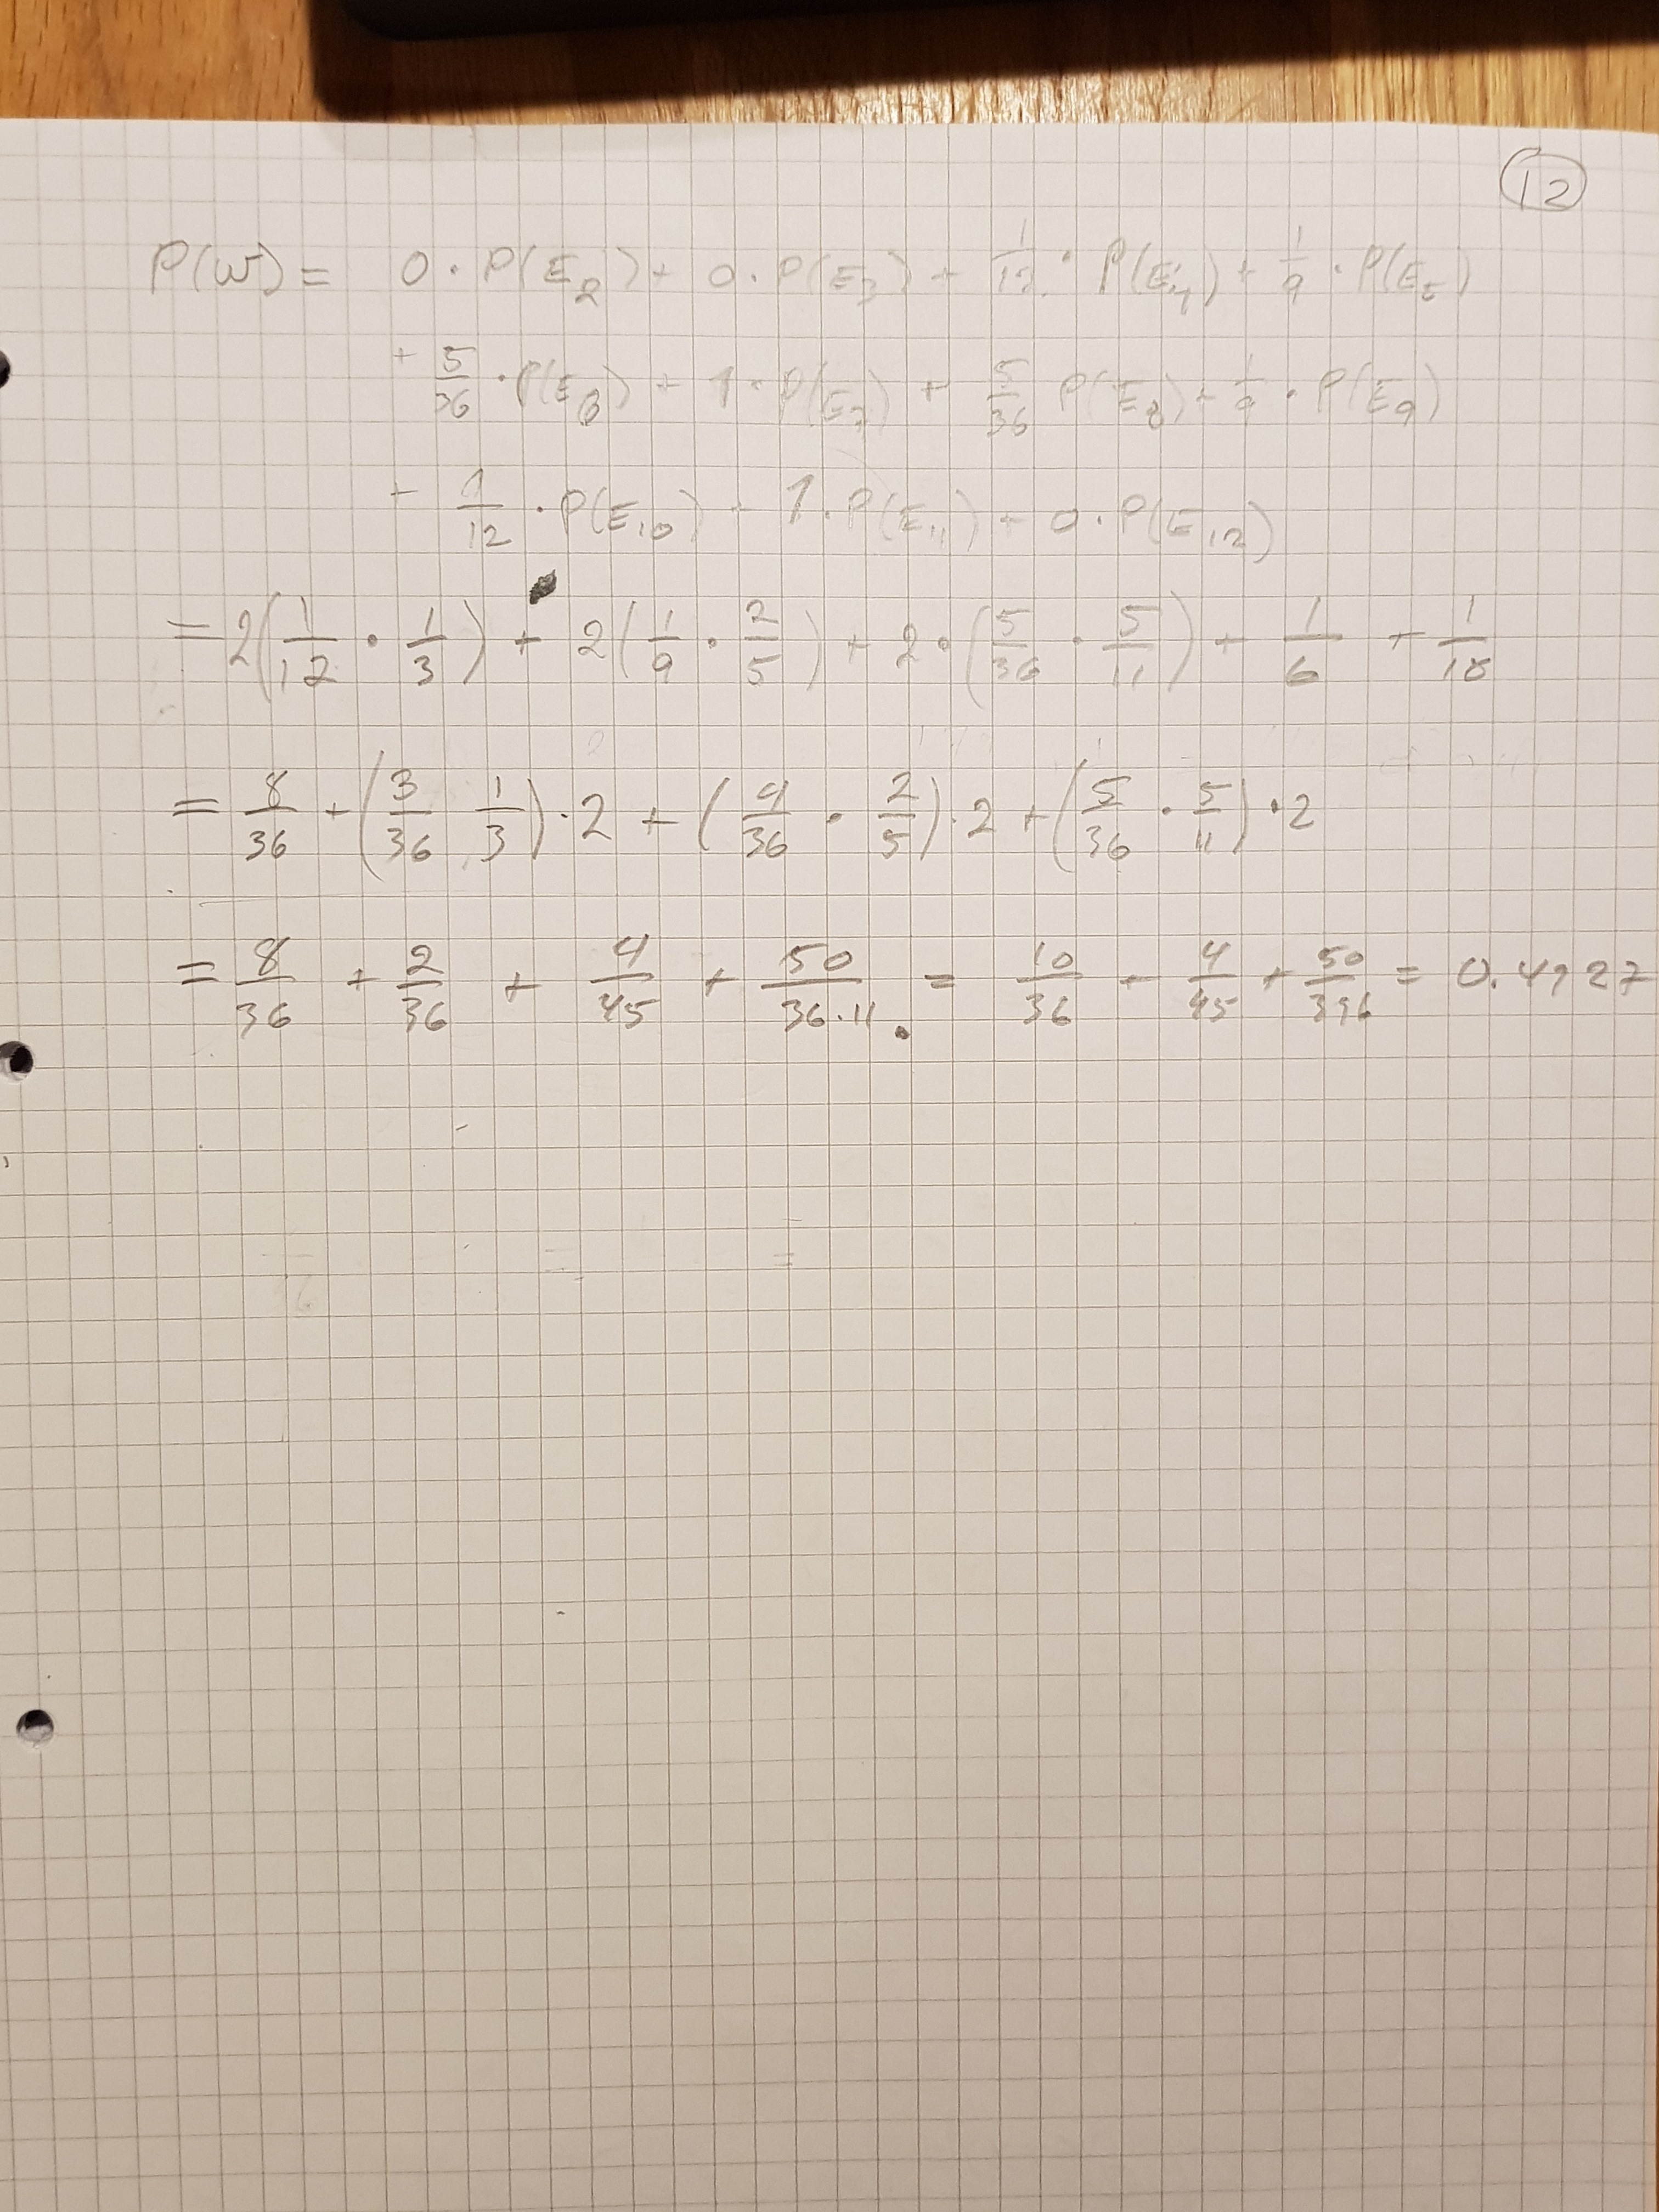 12
P(W) = 0 · P(E₂) + 0 · P(E₃) + 1/12 · P(E₄) + 1/9 · P(E₅)
+ 5/36 · P(E₆) + 1 · P(E₇) + 5/36 P(E₈) + 1/9 · P(E₉)
+ 1/12 · P(E₁₀) + 1 · P(E₁₁) + 0 · P(E₁₂)
= 2(1/12 · 1/3) + 2(1/9 · 2/5) + 2 · (5/36 · 5/11) + 1/6 + 1/18
= 8/36 + (3/36 1/3) · 2 + (4/36 · 2/5) · 2 + (5/36 · 5/11) · 2
= 8/36 + 2/36 + 4/45 + 50/36·11 = 10/36 + 4/45 + 50/396 = 0.4927